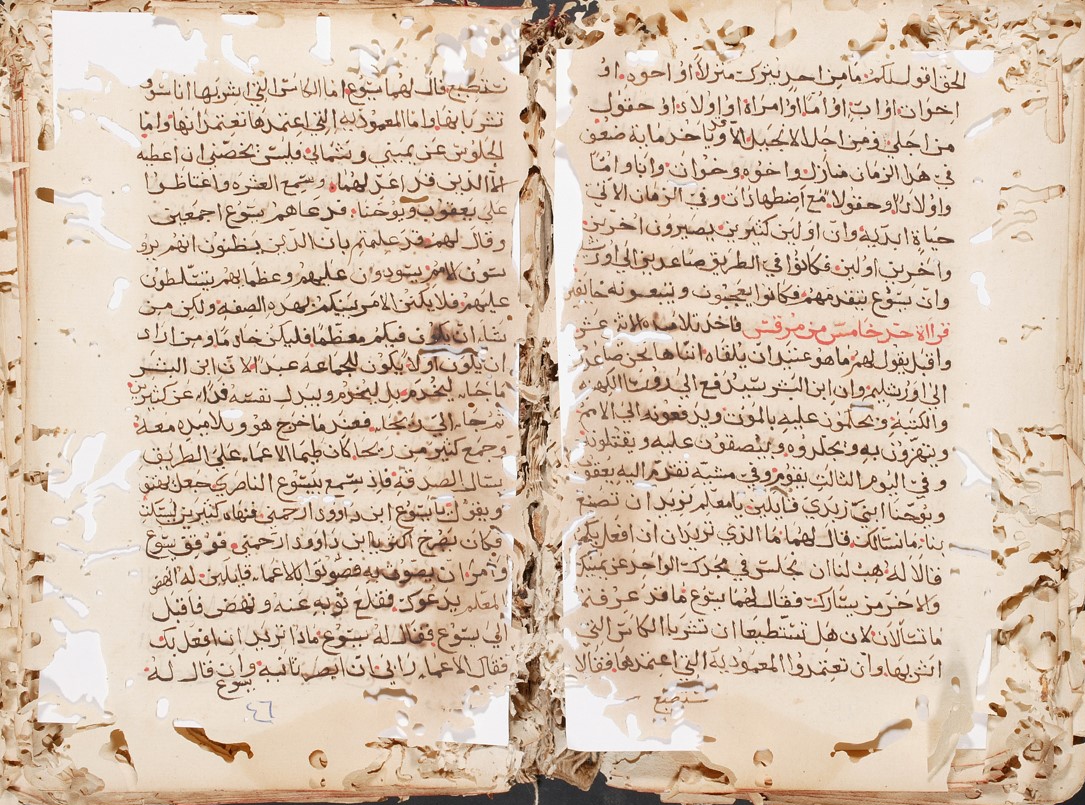 الحق اقول لكم مامن احد يترك منزلا او اخوه او
اخوات او اب او اما او امراة او اولاد او حقول
من اجلي ومن اجل الانجيل الا وياخد مايه ضعف
في هدا الزمان منازل واخوه وخوات وابا واما
واولادا وحقولا مع اضطهادات وفي الزمان الاتي
حياة الابديه وان اولين كثيرين يصيرون اخرين
واخرين اولين فكانوا في الطريق صاعدين الى اورش
وان يسوع يتقدمهم فكانوا يعجبون ويتبعونه خايفين
قراة احد خامس من مرقس فاخد تلاميده الاثنى عشر
واقبل يقول لهم ما هو عتيد ان يلقاه اننا ها نحن صاعدين
الى اورشليم وان ابن البشر سيدفع الى روسا الكهنه
والكتبه ويحكمون عليه بالموت ويدفعونه الى الامم
ويتهزون به ويجلدوه ويبصقون عليه ويقتلونه
وفي اليوم الثالث يقوم وفي مشيه تقدم اليه يعقوب
ويوحنا ابني زبدي قايلين يامعلم نريد ان تصنع
بنا مانسالك قال لهما ما الدي تريدان ان افعل بكما
قالا له هب لنا ان نجلس في مجدك الواحد عن يمينك
والاخر من يسارك فقال لهما يسوع ما قد عرفتما
ماتسالان لان هل تستطيعا ان تشربا الكاس التي
اشربها وان تعتمدوا المعموديه التي اعتمدها فقالا
نستطيع
نستطيع قال لهما يسوع اما الكاس التي اشربها انا سوف
تشربانها واما المعموديه التي اعتمدها تعتمدانها واما
الجلوس عن يميني وشمالي فليس يخصني ان اعطه
الا الدين قد اعد لهما وسمع العشره واغتاظوا
على يعقوب ويوحنا فدعاهم يسوع اجمعين
وقال لهم قد علمتم بان الدين يظنون انهم يرو
سون الامم يسودون عليهم وعظماهم يتسلطون
عليهم فلا يكن الامر بينكم بهده الصفه ولكن من
شا ان يكون فيكم معظما فليكن خادما ومن اراد
ان يكون اولا يكون للجماعه عبدا لان ابن البشر
ما جا ليخدم بل ليخدم وليدل نفسه فدا عن كثيرين
ثم جا الى ريحا فعند ما خرج هو وتلاميده معه
وجمع كثير من ريحا كان طيما الاعما على الطريق
يسال الصدقه فاد سمع بيسوع الناصري جعل يهتف
ويقول يايسوع ابن داوود ارحمني فنهاه كثيرين ليسكت
فكان يصرخ اكثر يا ابن داوود ارحمني فوقف يسوع
وامر ان يصوت به فصوتوا للاعما قايلين له انهض
المعلم يدعوك فقلع ثوبه عنه ونهض فاقبل
الى يسوع فقال له يسوع مادا تريد ان افعل بك
فقال الاعما رابي ان ابصر ثانيه وان قال له
يسوع
٤٦